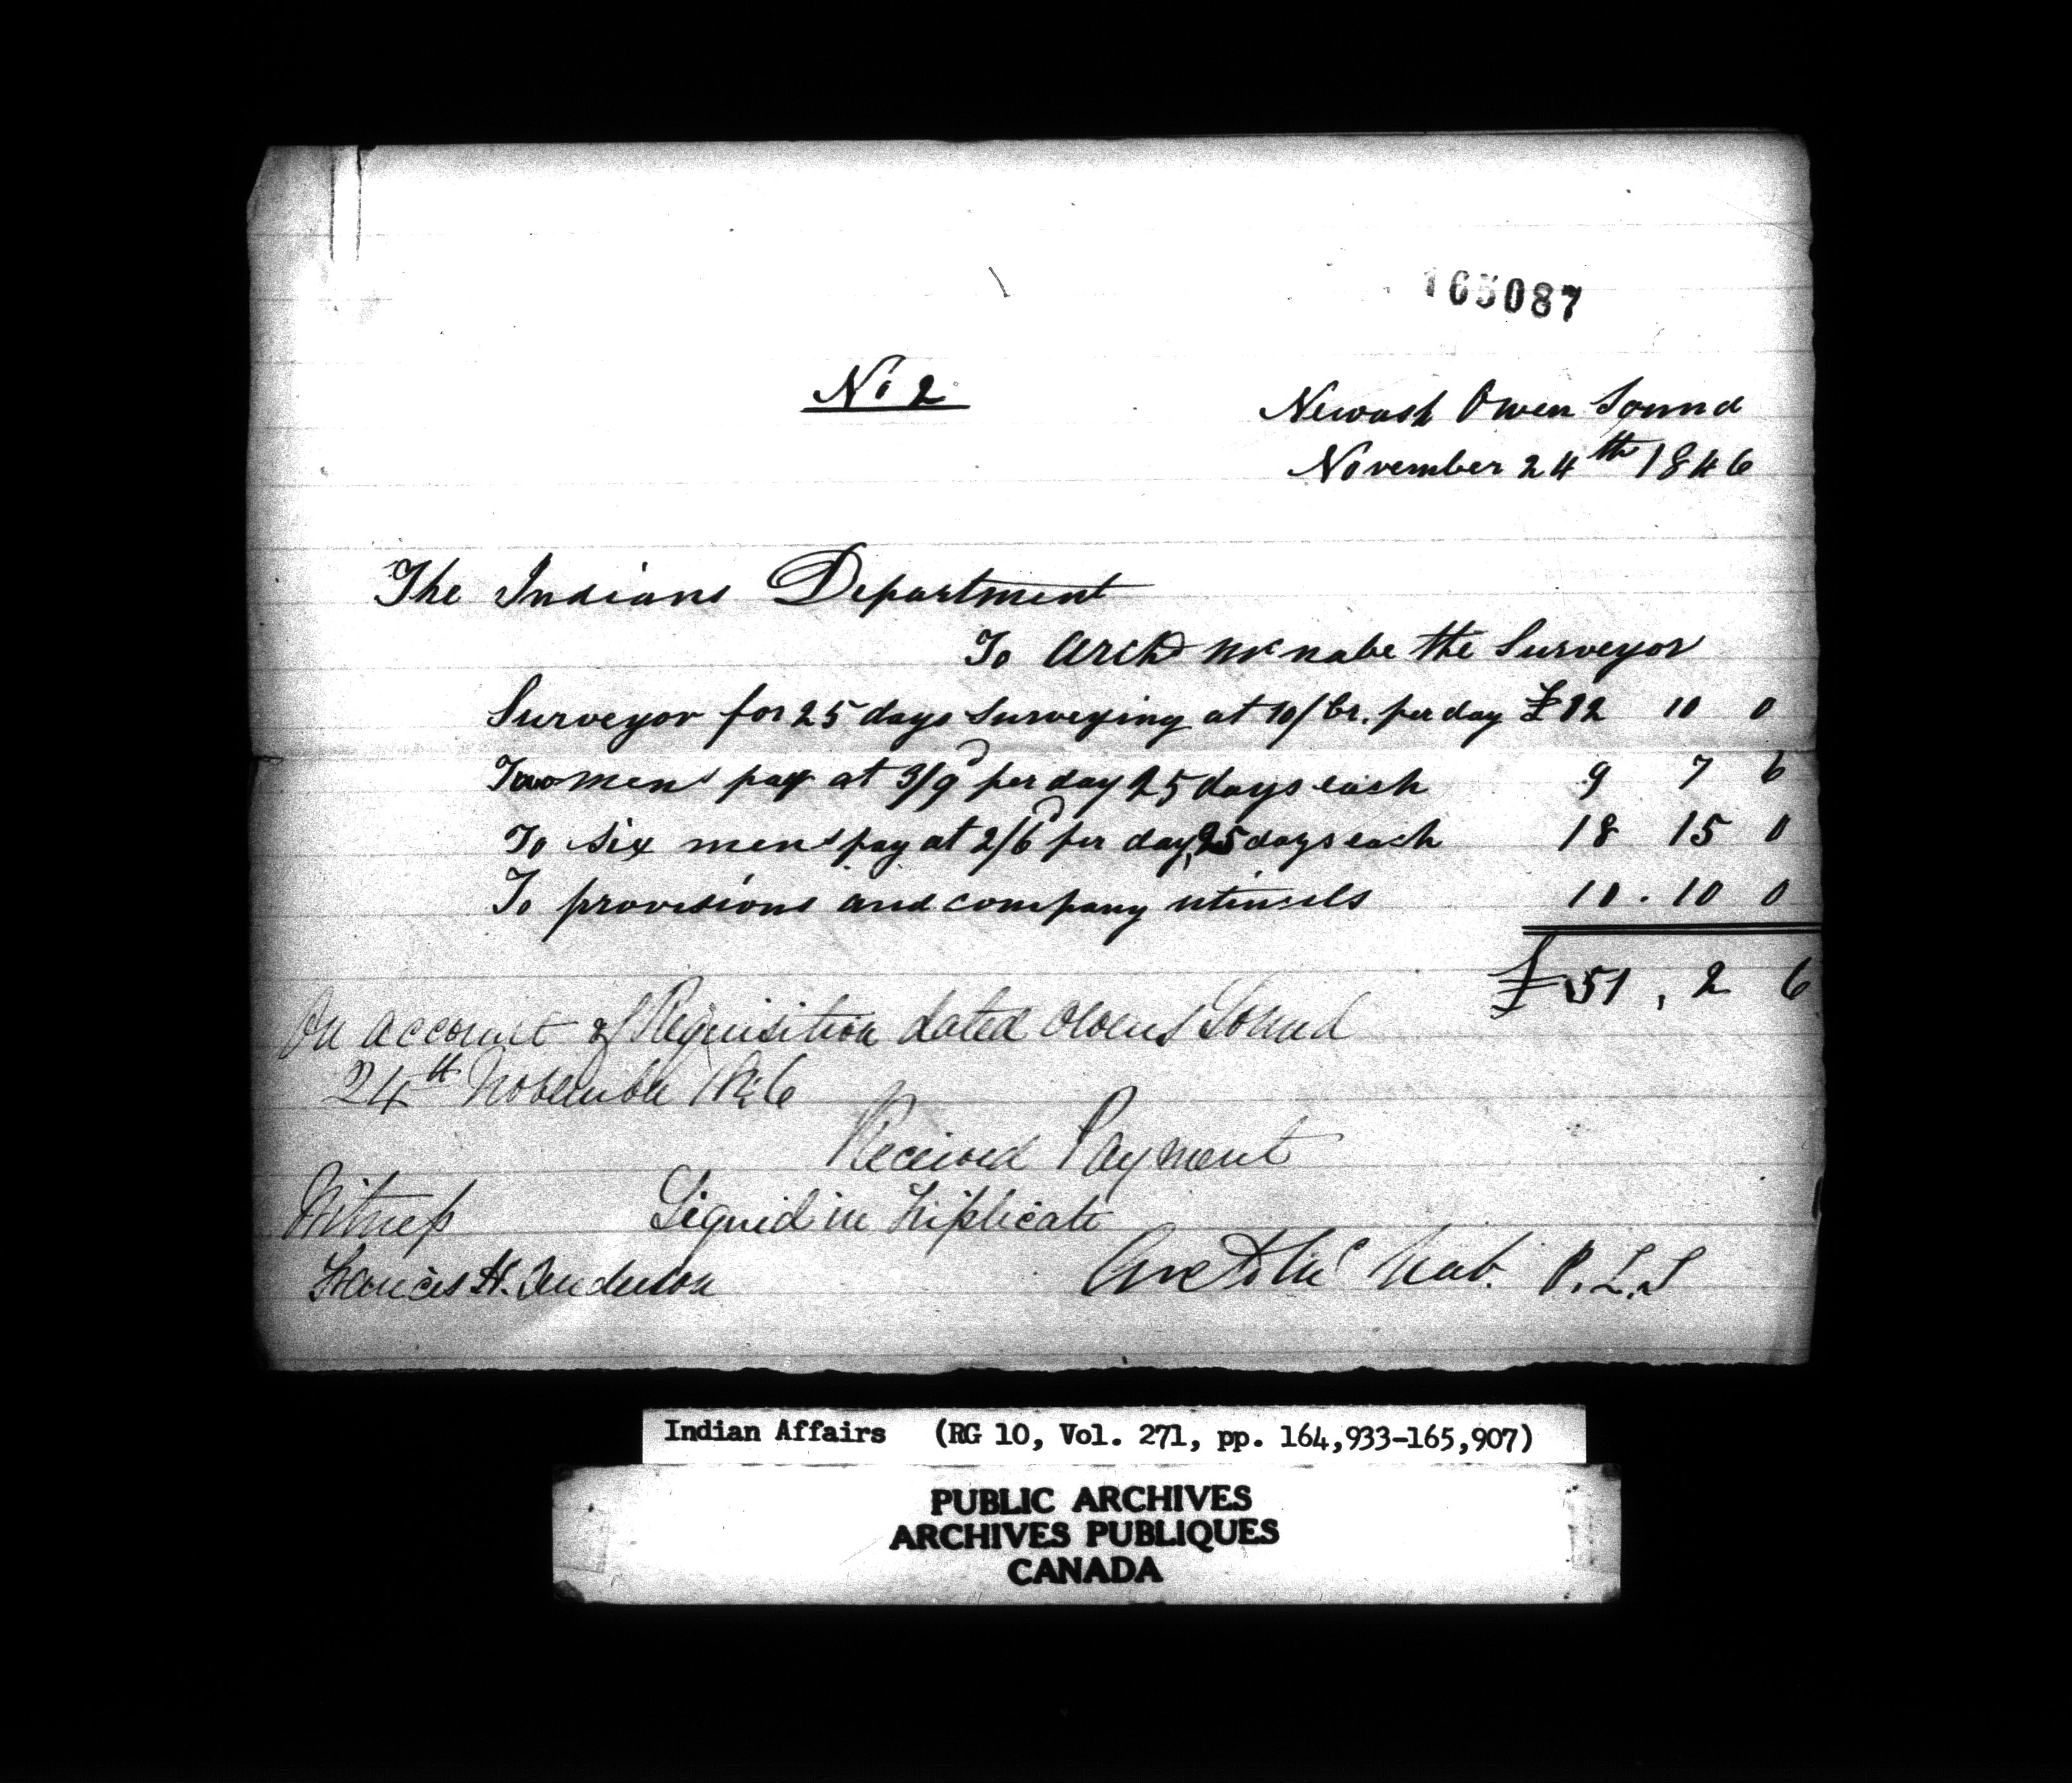 165087
No 2
Newash Owen Sound
November 24th 1846
The Indians Department
To Archd McNabe the Surveyor
Surveyor for 25 days Surveying at 10/ Cr. per day £12 10 0
Two mens pay at 3/9d per day 25 days each 9 7 6
To six mens pay at 2/6d per day, 25 days each 18 15 0
To provisions and company utinsils 10 . 10 0
£51, 2 6
On account of Requisition dated Owens Sound
24th November 1846
Received Payment
Witness Signed in Triplicate
Francis H. Archd McNab. P.L.S
Indian Affairs (RG 10, Vol. 271, pp. 164,933-165,907)
PUBLIC ARCHIVES
ARCHIVES PUBLIQUES
CANADA